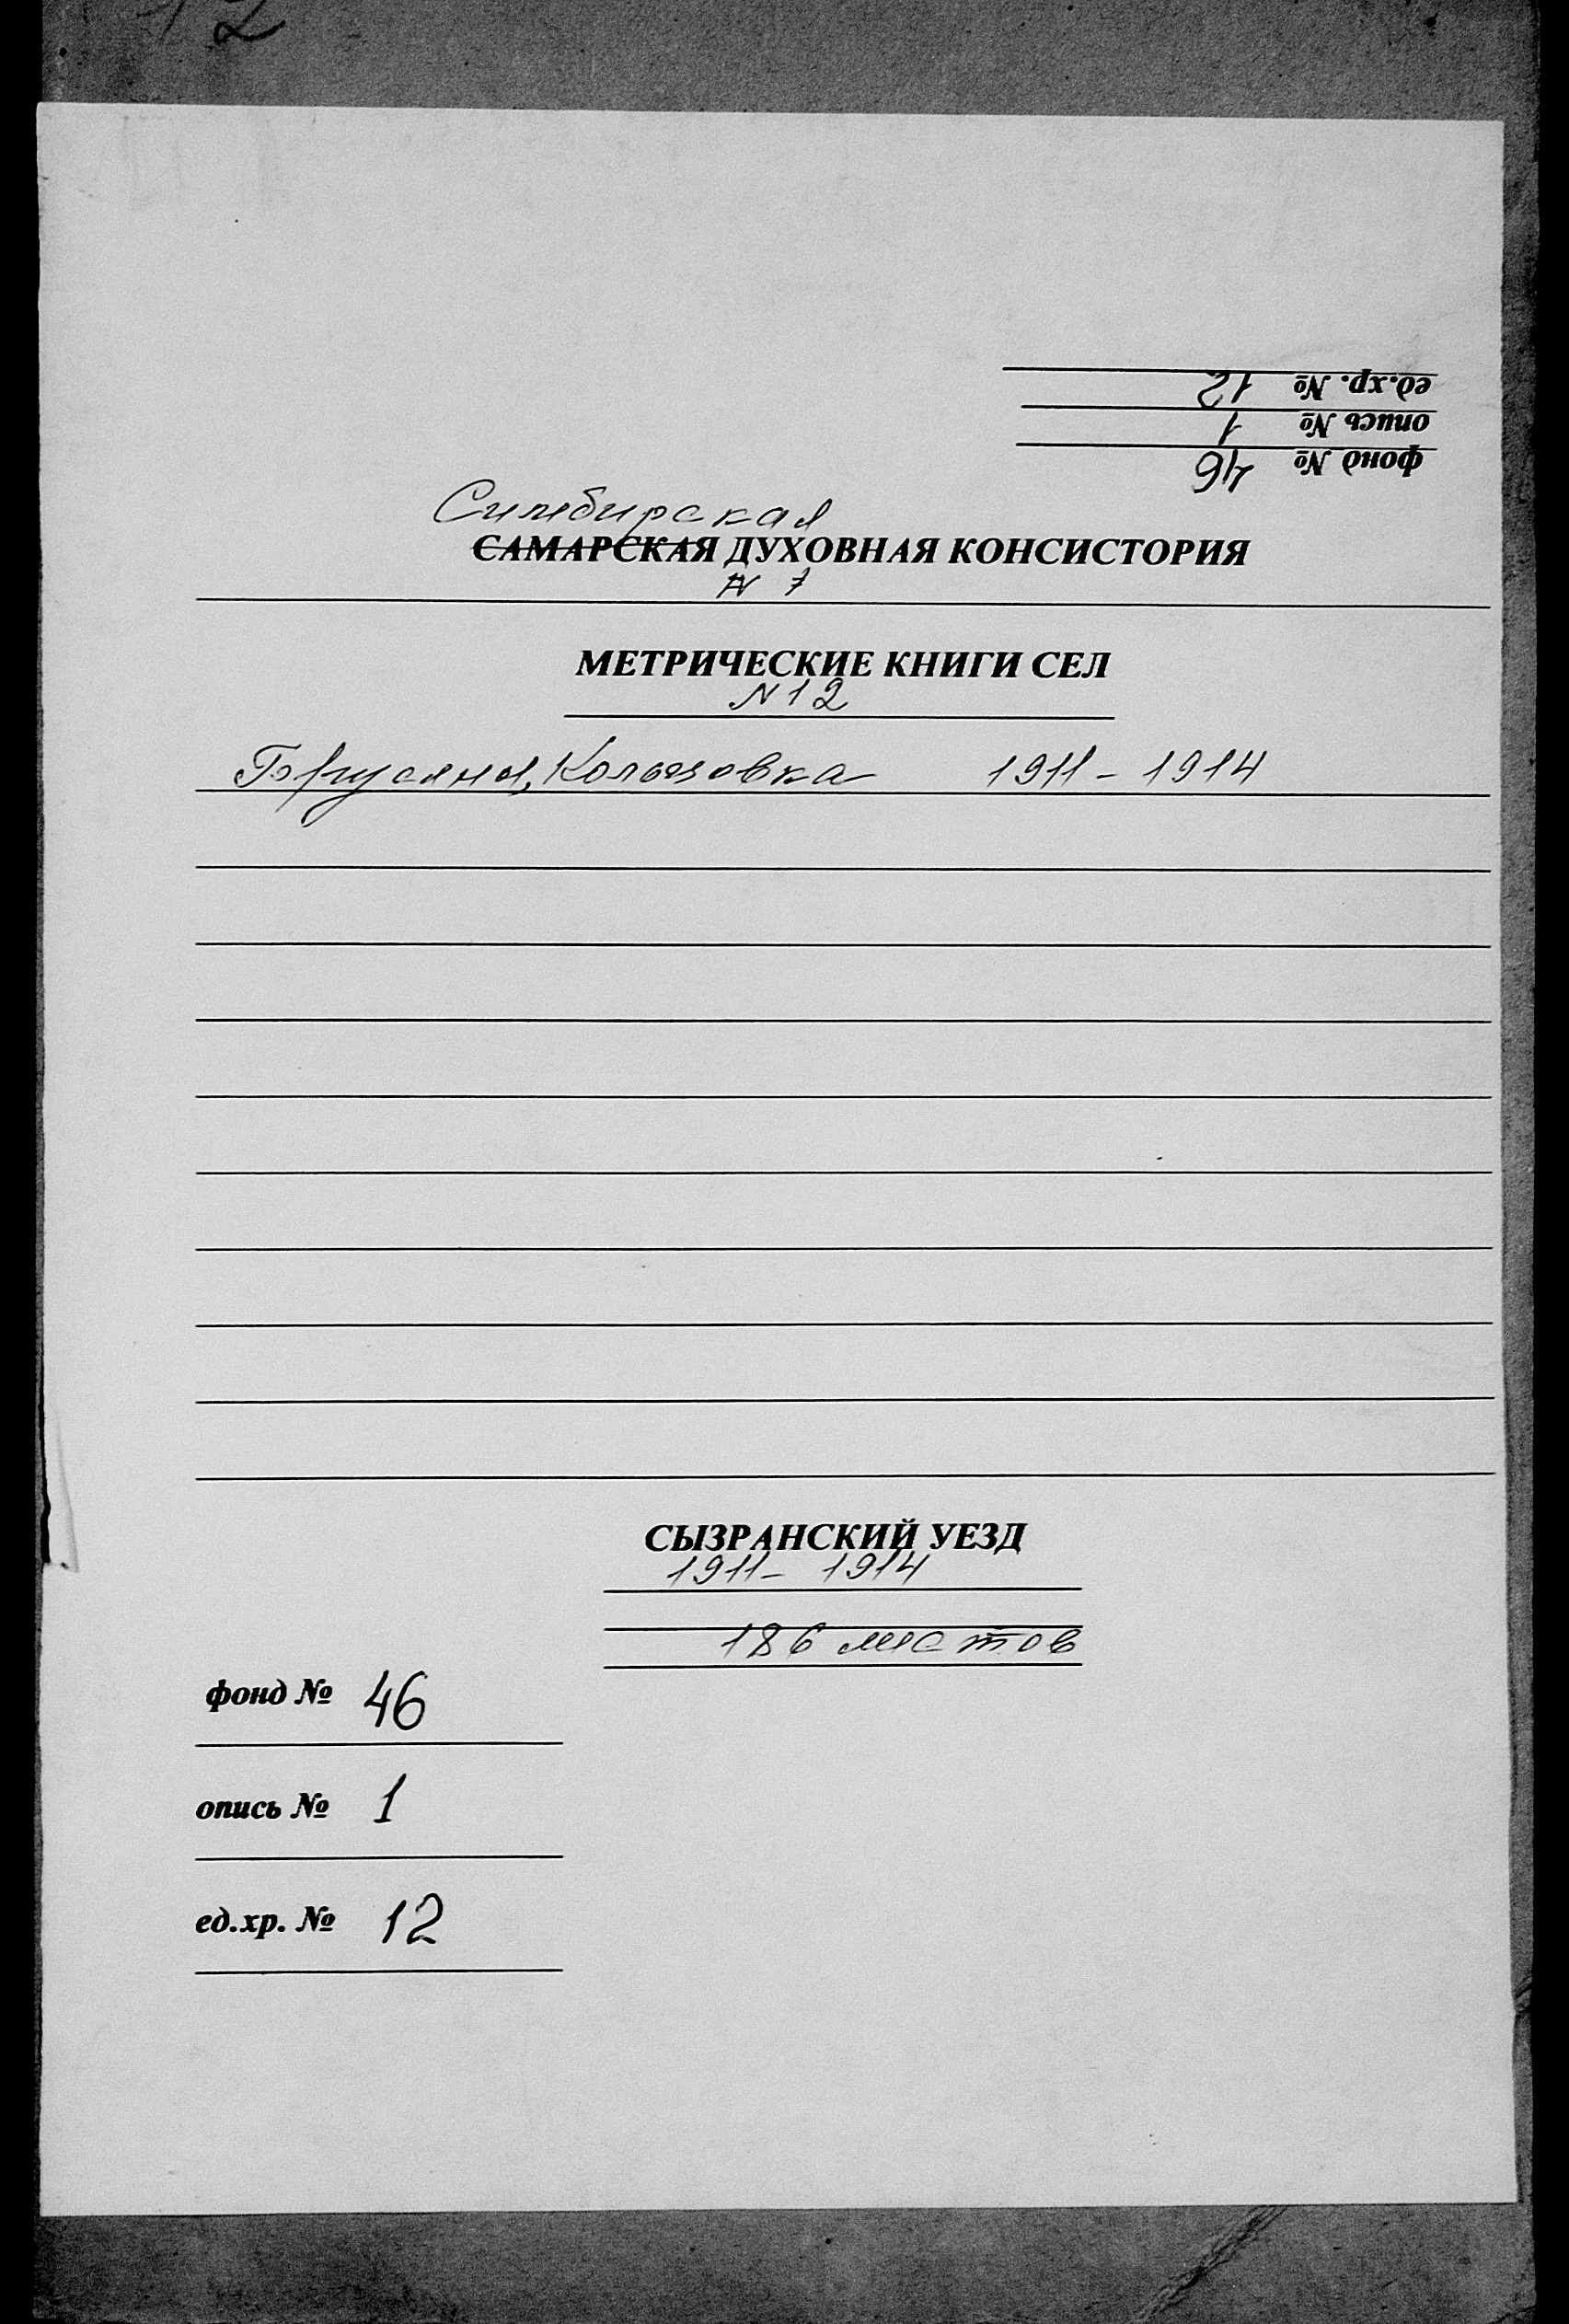 12
ед.хр. № 12
опись № 1
фонд № 46
Симбирская
САМАРСКАЯ ДУХОВНАЯ КОНСИСТОРИЯ
N 7
МЕТРИЧЕСКИЕ КНИГИ СЕЛ
N 12
Брусяны, Кользовка 1911 - 1914
СЫЗРАНСКИЙ УЕЗД
1911 - 1914
186 листов
фонд № 46
опись № 1
ед.хр. № 12